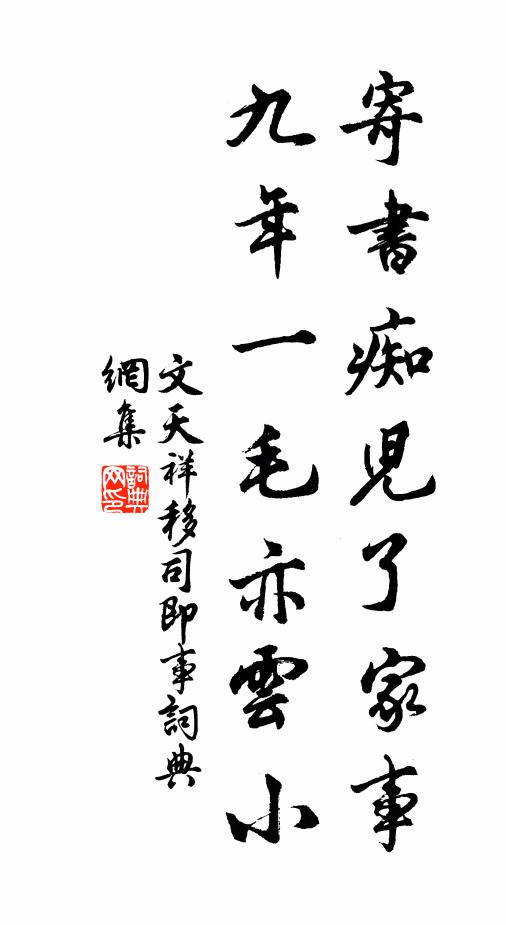 寄書痴児了家事
九年一毛亦雲小
文天祥移司即事詞典
網集
詞典網印